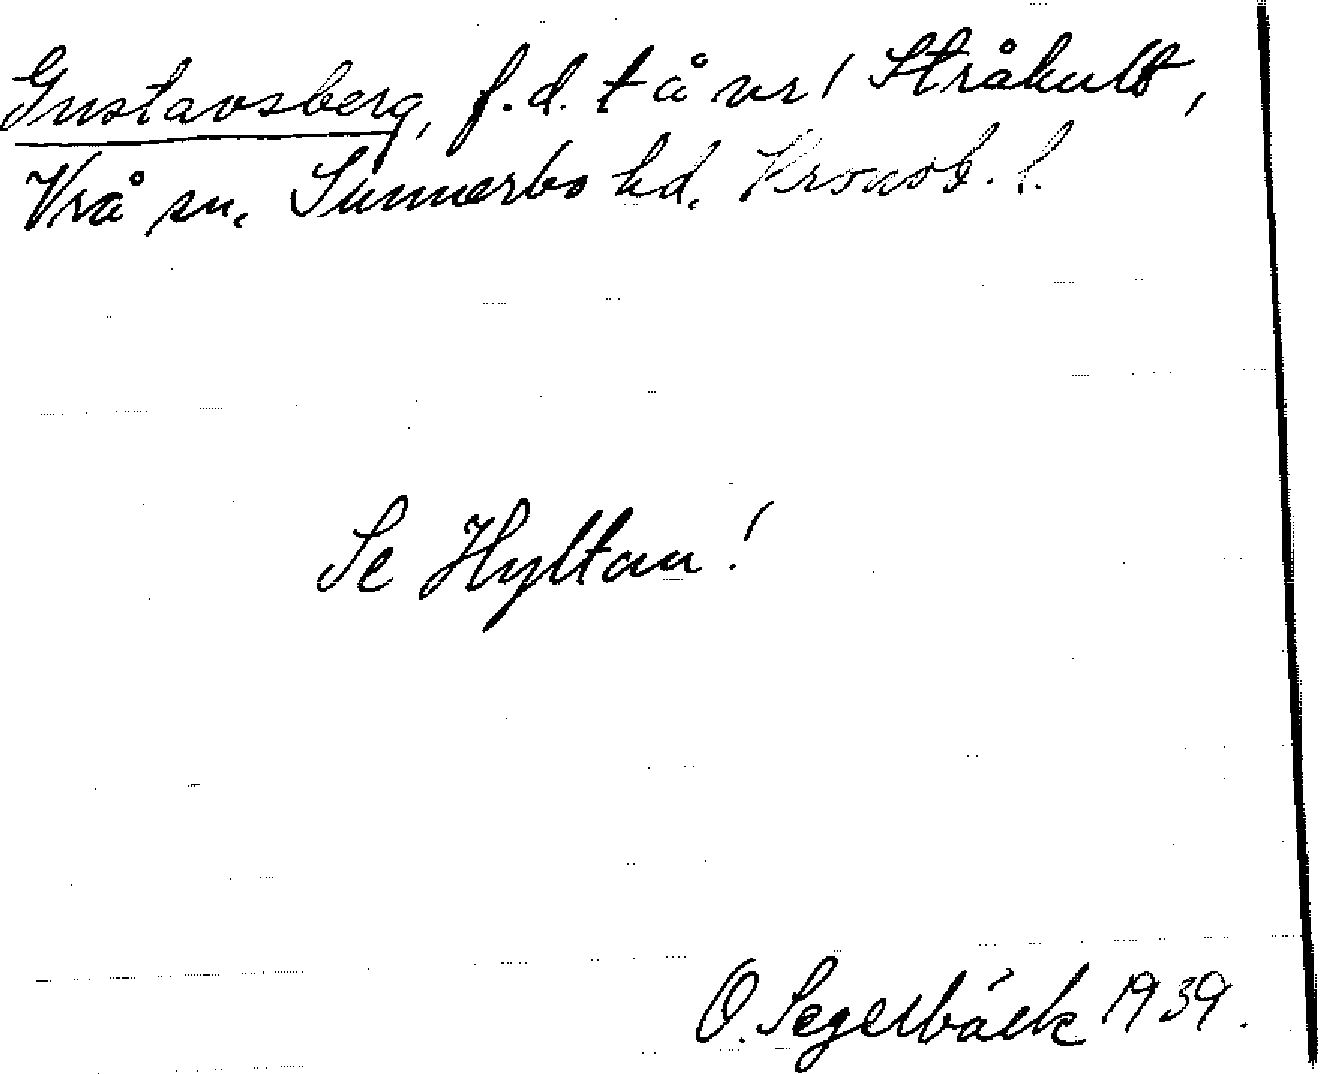 Gustavsberg, f.d. t å nr 1 Stråkult,
Vrå sn. Sunnerbo hd. Kronob. l.
Se Hyltan!
O. Segerbäck 1939.